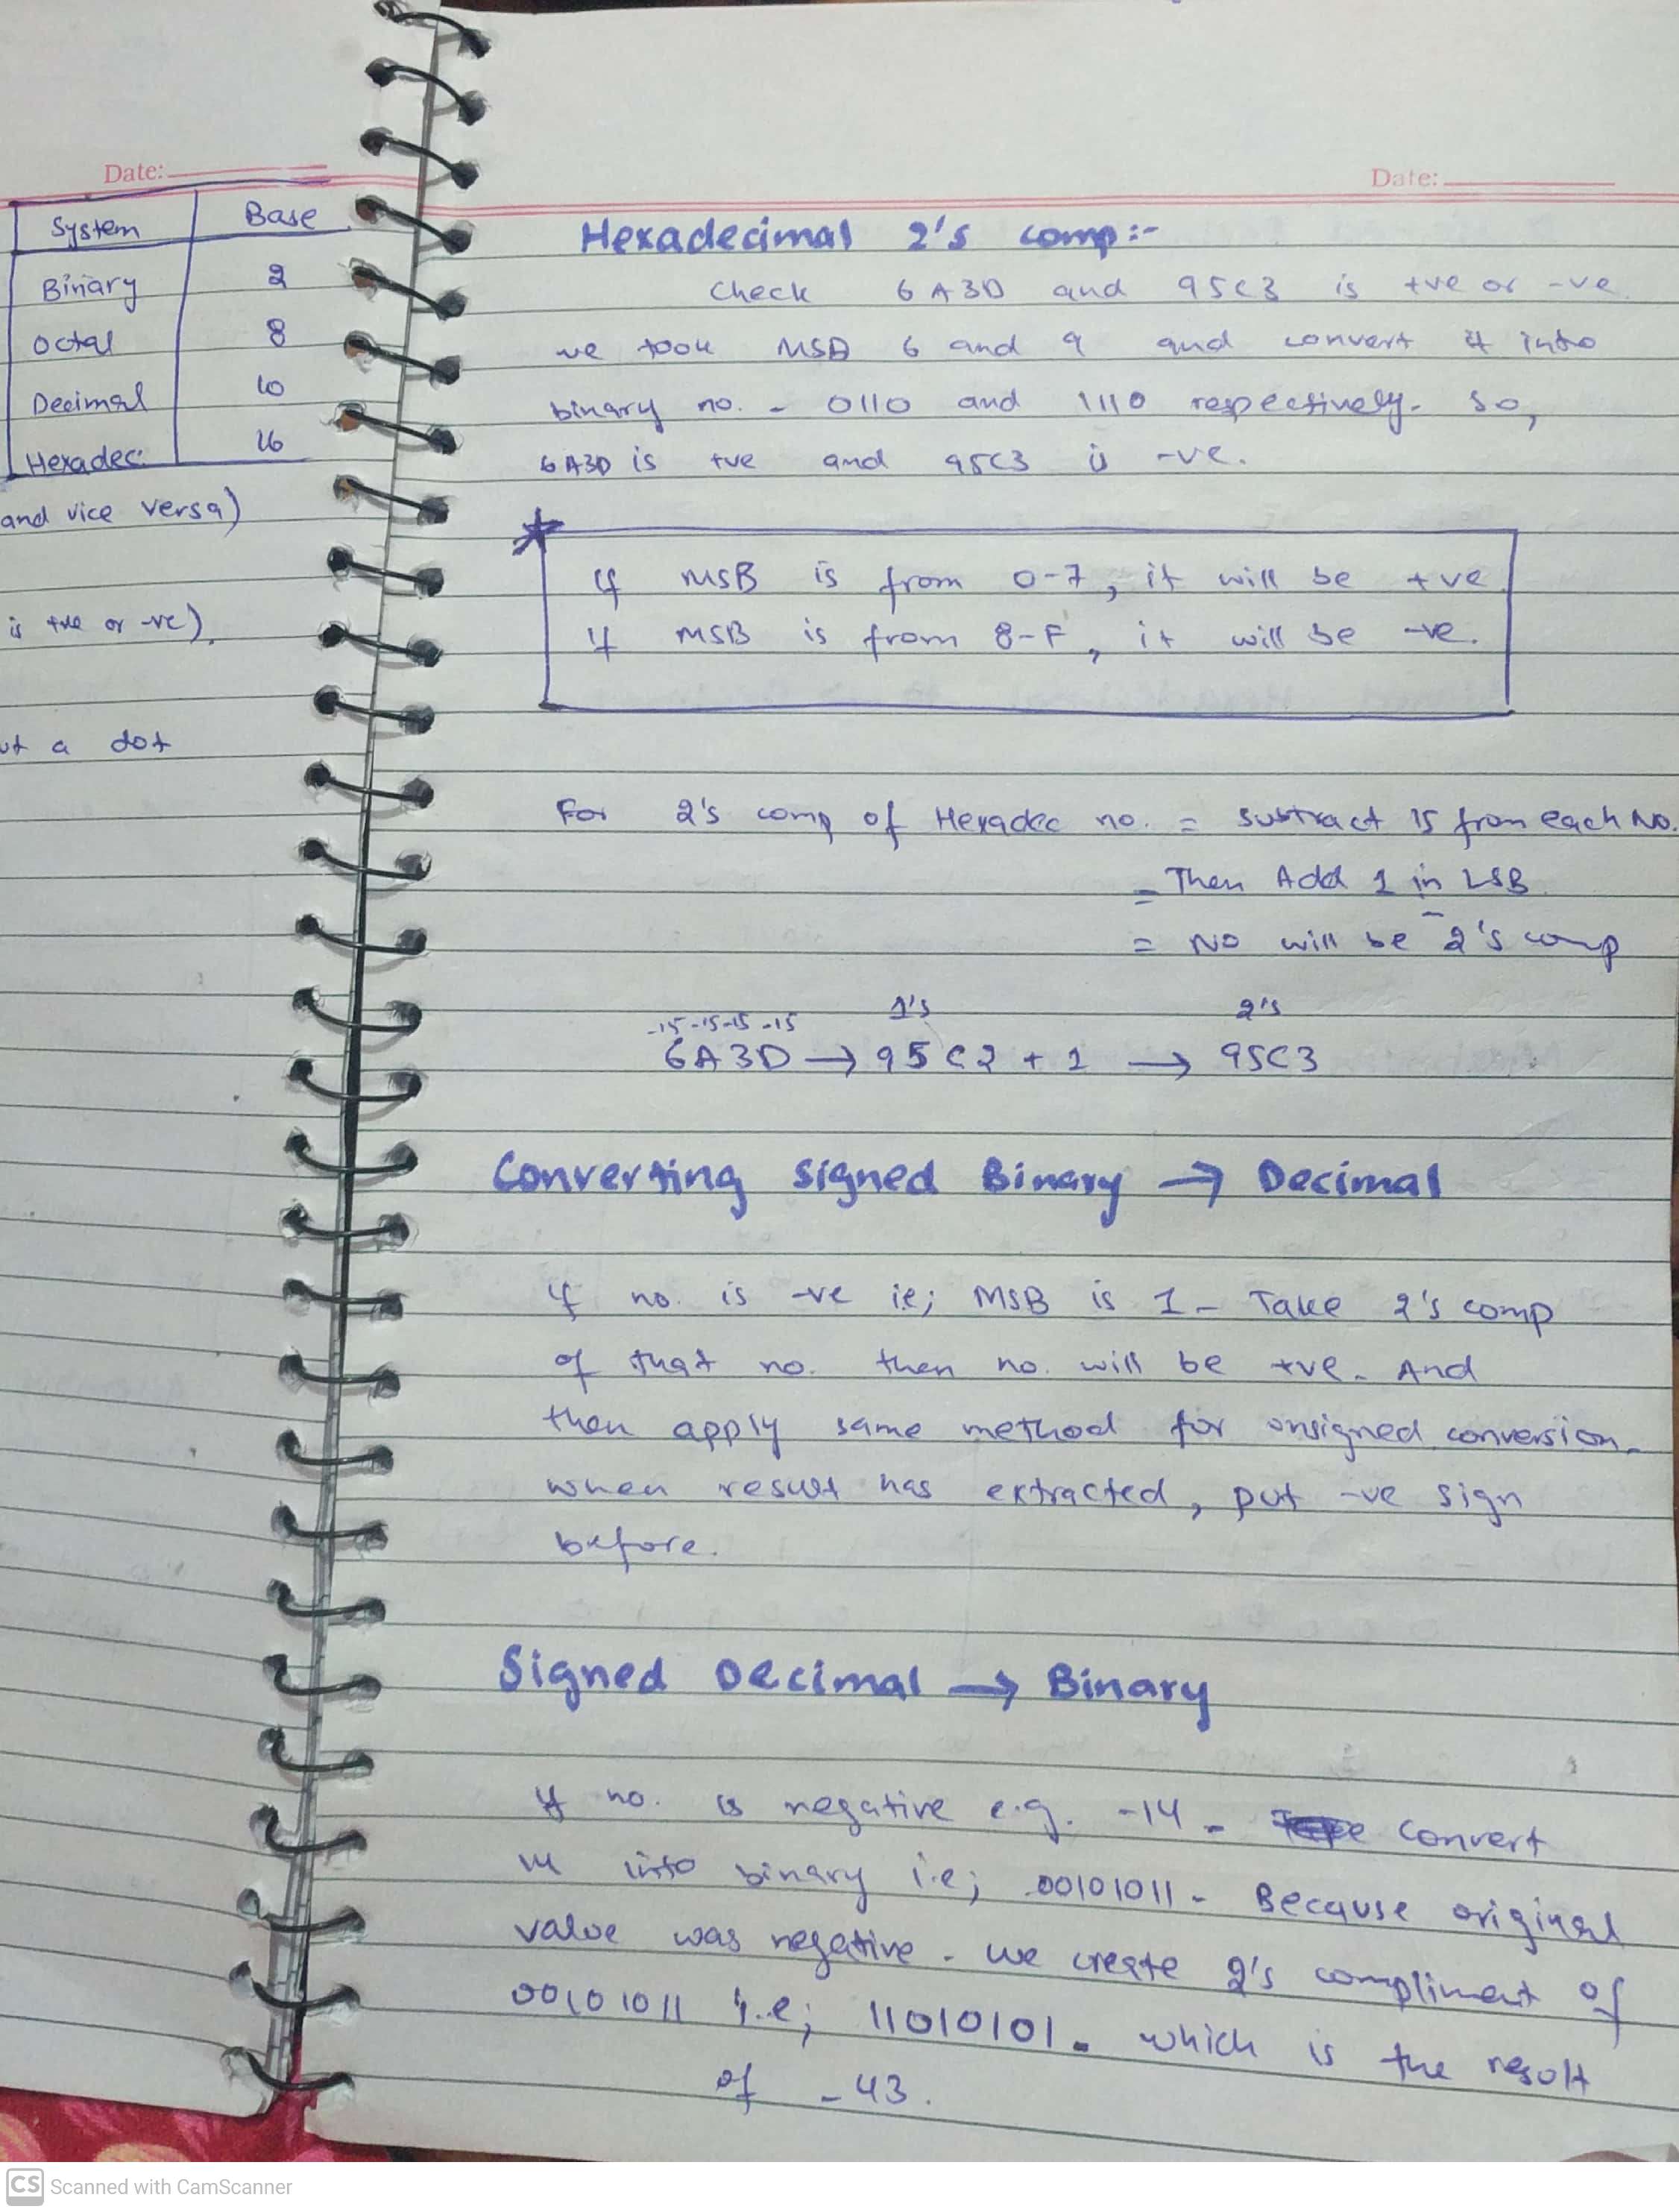 Date:
System Base
Binary 2
Octal 8
Decimal 10
Hexadec. 16
and vice versa)
is +ve or -ve).
a dot
Date:
Hexadecimal 2's comp:-
Check 6A3D and 95C3 is +ve or -ve.
we took MSD 6 and 9 and convert it into
binary no. - 0110 and 1110 respectively. So,
6A3D is +ve and 95C3 is -ve.
If MSB is from 0-7, it will be +ve
If MSB is from 8-F, it will be -ve.
For 2's comp of Hexadec no. = subtract 15 from each No.
= Then Add 1 in LSB
= No will be 2's comp
1's 2's
-15-15-15-15
6A3D → 95C2 + 1 → 95C3
Converting Signed Binary → Decimal
if no. is -ve ie; MSB is 1 - Take 2's comp
of that no. then no. will be +ve. And
then apply same method for unsigned conversion.
when result has extracted, put -ve sign
before.
Signed Decimal → Binary
If no. is negative e.g. -14 - Convert
into binary i.e; 00101011 - Because original
value was negative. we create 2's compliment of
00101011 i.e; 11010101. which is the result
of -43.
CS Scanned with CamScanner